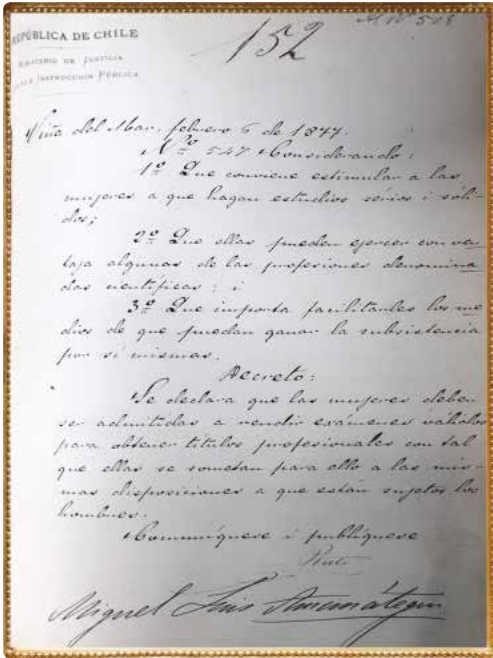 REPÚBLICA DE CHILE
152
MINISTERIO DE JUSTICIA
INSTRUCCION PÚBLICA
Viña del Mar, febrero 6 de 1847.
Nº 547 Considerando:
1º Que conviene estimular a las
mujeres a que hagan estudios sérios i sóli-
dos;
2º Que ellas pueden ejercer con ven
taja algunas de las profesiones denomina
das científicas: i
3º Que importa facilitarles los me
dios de que puedan ganar la subsistencia
por si mismas.
Decreto:
Se declara que las mujeres deben
ser admitidas a rendir exámenes válidos
para obtener titulos profesionales con tal
que ellas se sometan para ello a las mis-
mas disposiciones a que están sujetos los
hombres.
Comuníquese i publíquese
Pinto
Miguel Luis Amunátegui